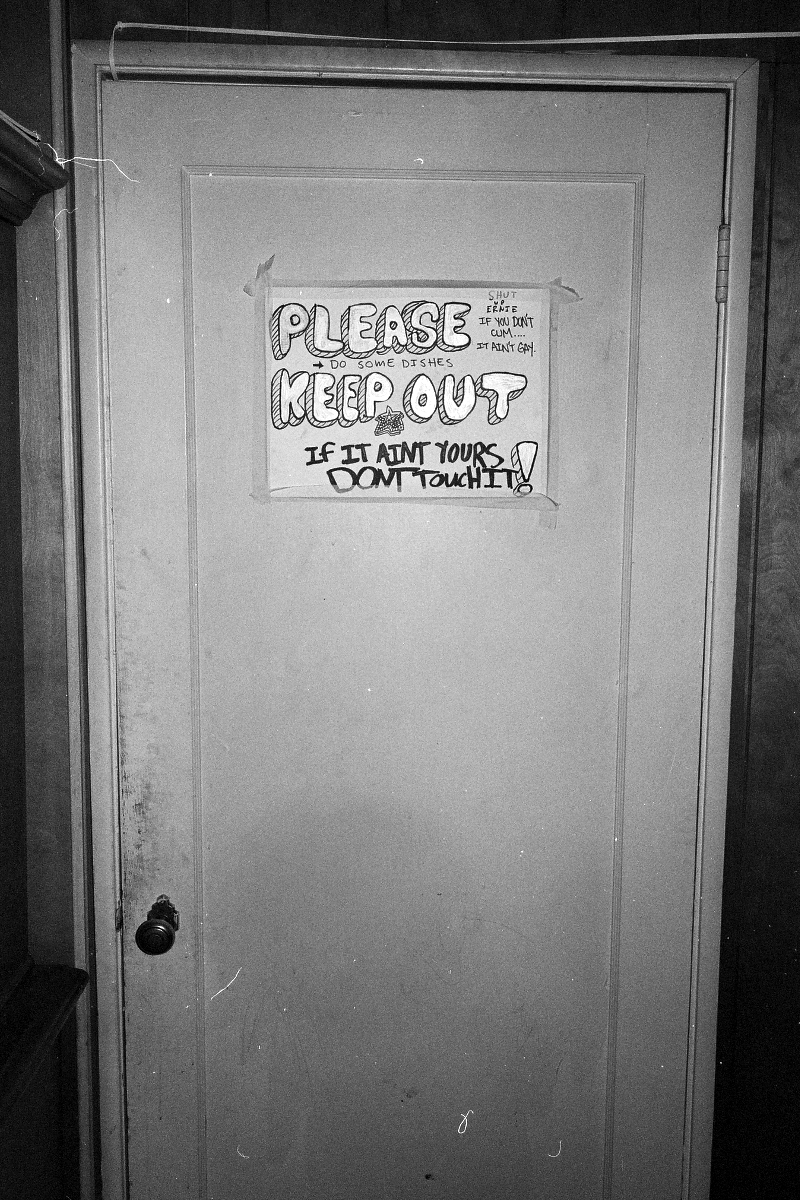 PLEASE
→ DO SOME DISHES
KEEP OUT
IF IT AINT YOURS
DONT TOUCH IT!
SHUT
UP
ERNIE
IF YOU DON'T
CUM....
IT AIN'T GAY.